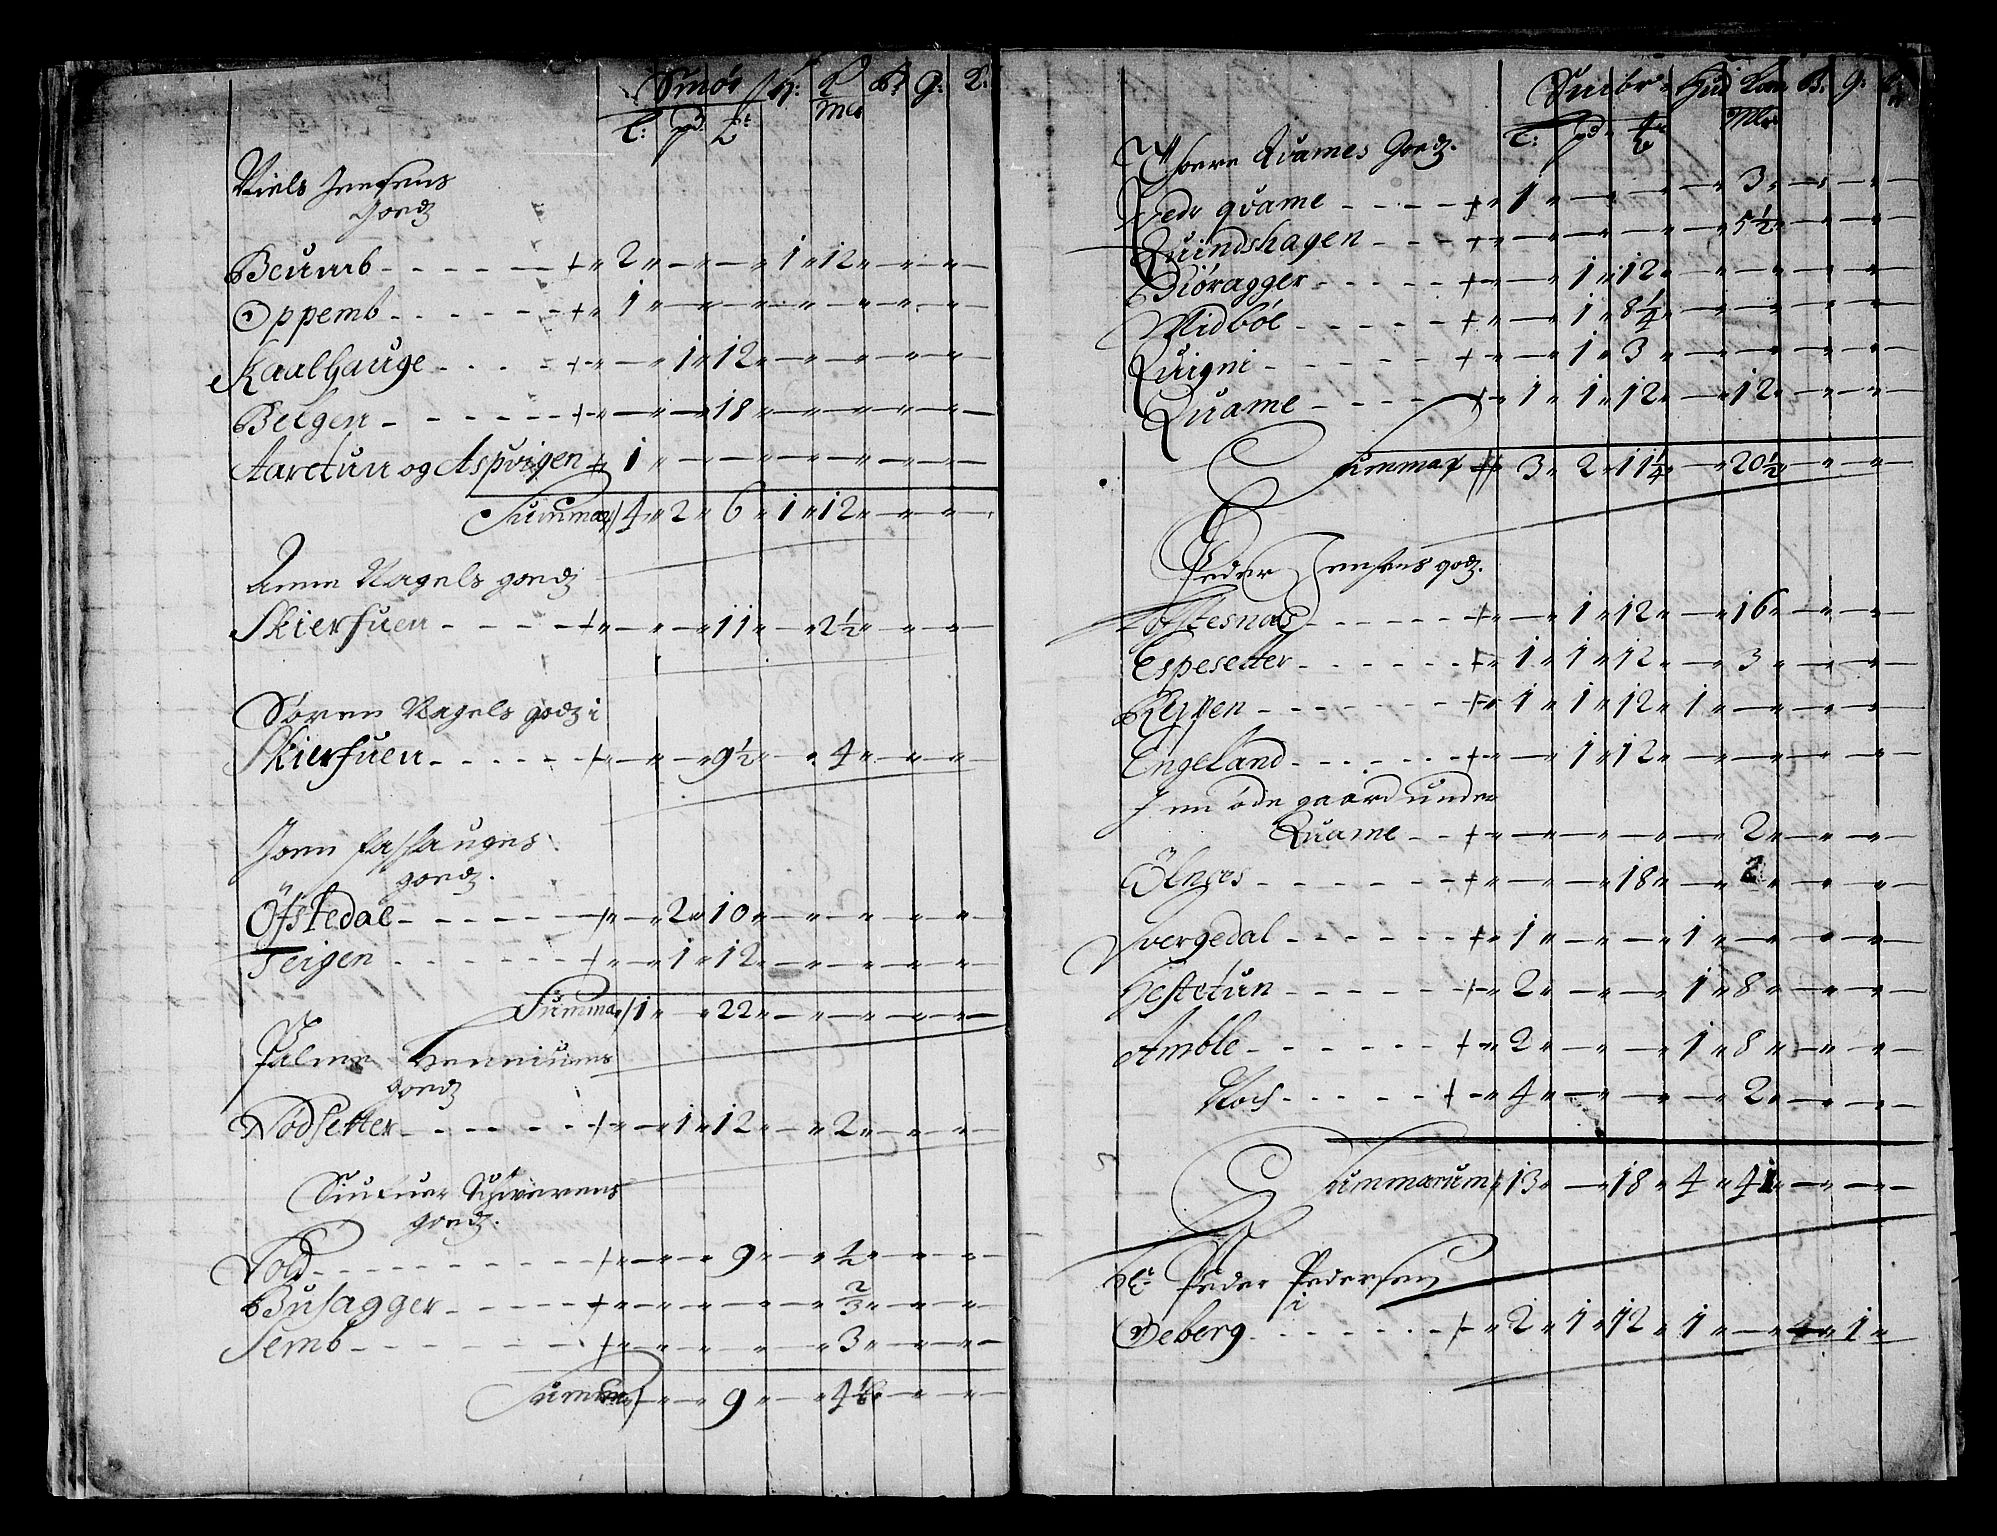 Smør H: K B: g: L:
L: pd: Mel
Niels Jensens
Goedz
Beumb - - - + 2 1 12
Oppemb - - - + 1
Kaalhauge - - - + 1 12
Bergen - - - + 18
Aaretun og Aspvigen + 1
Summa 4 2 6 1 12
Anne Nagels goedz
Skierfuen - - - + 11 2½
Søren Nagels godz i
Skierfuen - - - + 9½ 4
Joen
goedz.
Ofstedal - - - + 2 10
Teigen - - - + 1 12
Summa 1 22
Palme Henniums
goedz
Nødsetter - - - + 1 12 2
Siufuer
goedz.
Vold - - - + 9 ½
Busagger - - - + ⅔
Semb - - - + 3
Summa 9 4⅙
Smør Hud B. g.
L: pd Mel
Thorre Quames Goedz.
Nedr qvame - - - + 1 3
Quindshagen - - - + 5½
Biøragger - - - + 1 12
Midbøe - - - + 1 8¼
Quigni - - - + 1 3
Quame - - - + 1 1 12 12
Summa 3 2 11¼ 20½
Peder Jensens godz.
Lofstesnas - - - + 1 12 16
Espesetter - - - + 1 1 12 3
Reppen - - - + 1 1 12 1
Engeland - - - + 1 12
J en øde gaard under
Quame - - + 2
Ølnges - - - + 18 2
Svergedal - - - + 1 1
Hestetun - - - + 2 1 8
Amble - - - + 2 1 8
Noch - - - + 4 2
Summarum 13 18 4 41
Hr: Peder Pedersen
i
Oeberg - - - + 2 1 12 1 4 1